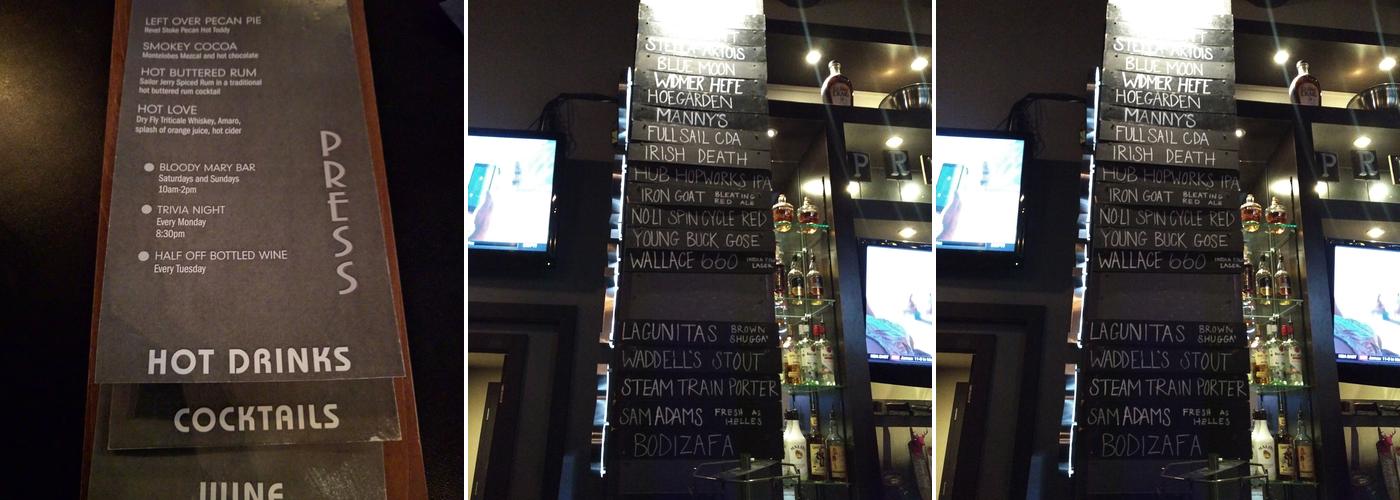 LEFT OVER PECAN PIE
Revel Stoke Pecan Hot Toddy
SMOKEY COCOA
Montelobos Mezcal and hot chocolate
HOT BUTTERED RUM
Sailor Jerry Spiced Rum in a traditional
hot buttered rum cocktail
HOT LOVE
Dry Fly Triticale Whiskey, Amaro,
splash of orange juice, hot cider
BLOODY MARY BAR
Saturdays and Sundays
10am-2pm
TRIVIA NIGHT
Every Monday
8:30pm
HALF OFF BOTTLED WINE
Every Tuesday
PRESS
HOT DRINKS
COCKTAILS
WINE
STELLA ARTOIS
BLUE MOON
WIDMER HEFE
HOEGARDEN
MANNY'S
FULL SAIL CDA
IRISH DEATH
HUB HOPWORKS IPA
IRON GOAT BLEATING RED ALE
NO-LI SPIN CYCLE RED
YOUNG BUCK GOSE
WALLACE 660
LAGUNITAS BROWN SHUGGA'
WADDELL'S STOUT
STEAM TRAIN PORTER
SAM ADAMS FRESH AS HELLES
BODIZAFA
P R
STELLA ARTOIS
BLUE MOON
WIDMER HEFE
HOEGARDEN
MANNY'S
FULL SAIL CDA
IRISH DEATH
HUB HOPWORKS IPA
IRON GOAT BLEATING RED ALE
NO-LI SPIN CYCLE RED
YOUNG BUCK GOSE
WALLACE 660
LAGUNITAS BROWN SHUGGA'
WADDELL'S STOUT
STEAM TRAIN PORTER
SAM ADAMS FRESH AS HELLES
BODIZAFA
P R